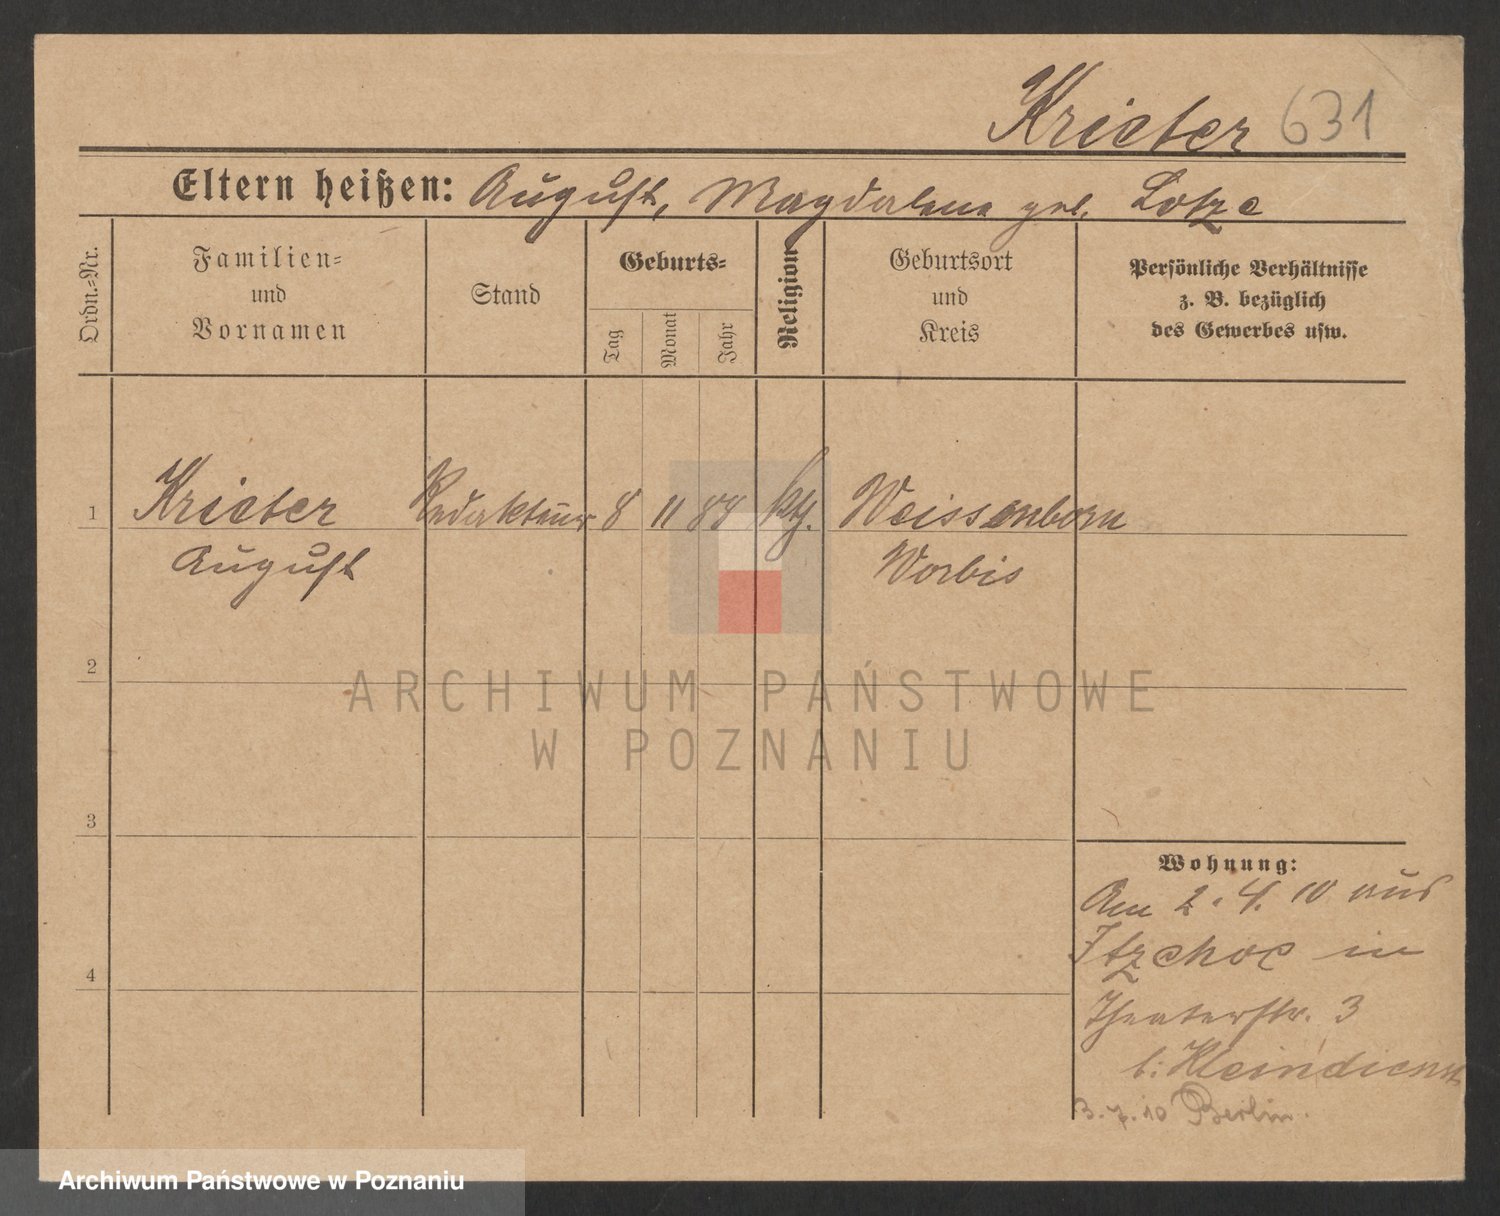 Krieter 631
Eltern heißen: August, Magdalena geb. Lotze
Ordn.-Nr.
Familien-
und
Vornamen
Stand
Geburts-
Tag
Monat
Jahr
Religion
Geburtsort
und
Kreis
Persönliche Verhältnisse
z. B. bezüglich
des Gewerbes usw.
1 Krieter Redakteur 8 11 84 ktz. Weissenborn
August Worbis
2
ARCHIWUM PAŃSTWOWE
W POZNANIU
3
Wohnung:
Am 2.4.10 aus
Itzehoe in
Theaterstr. 3
b. Kleindienst
4
3.7.10 Berlin.
Archiwum Państwowe w Poznaniu